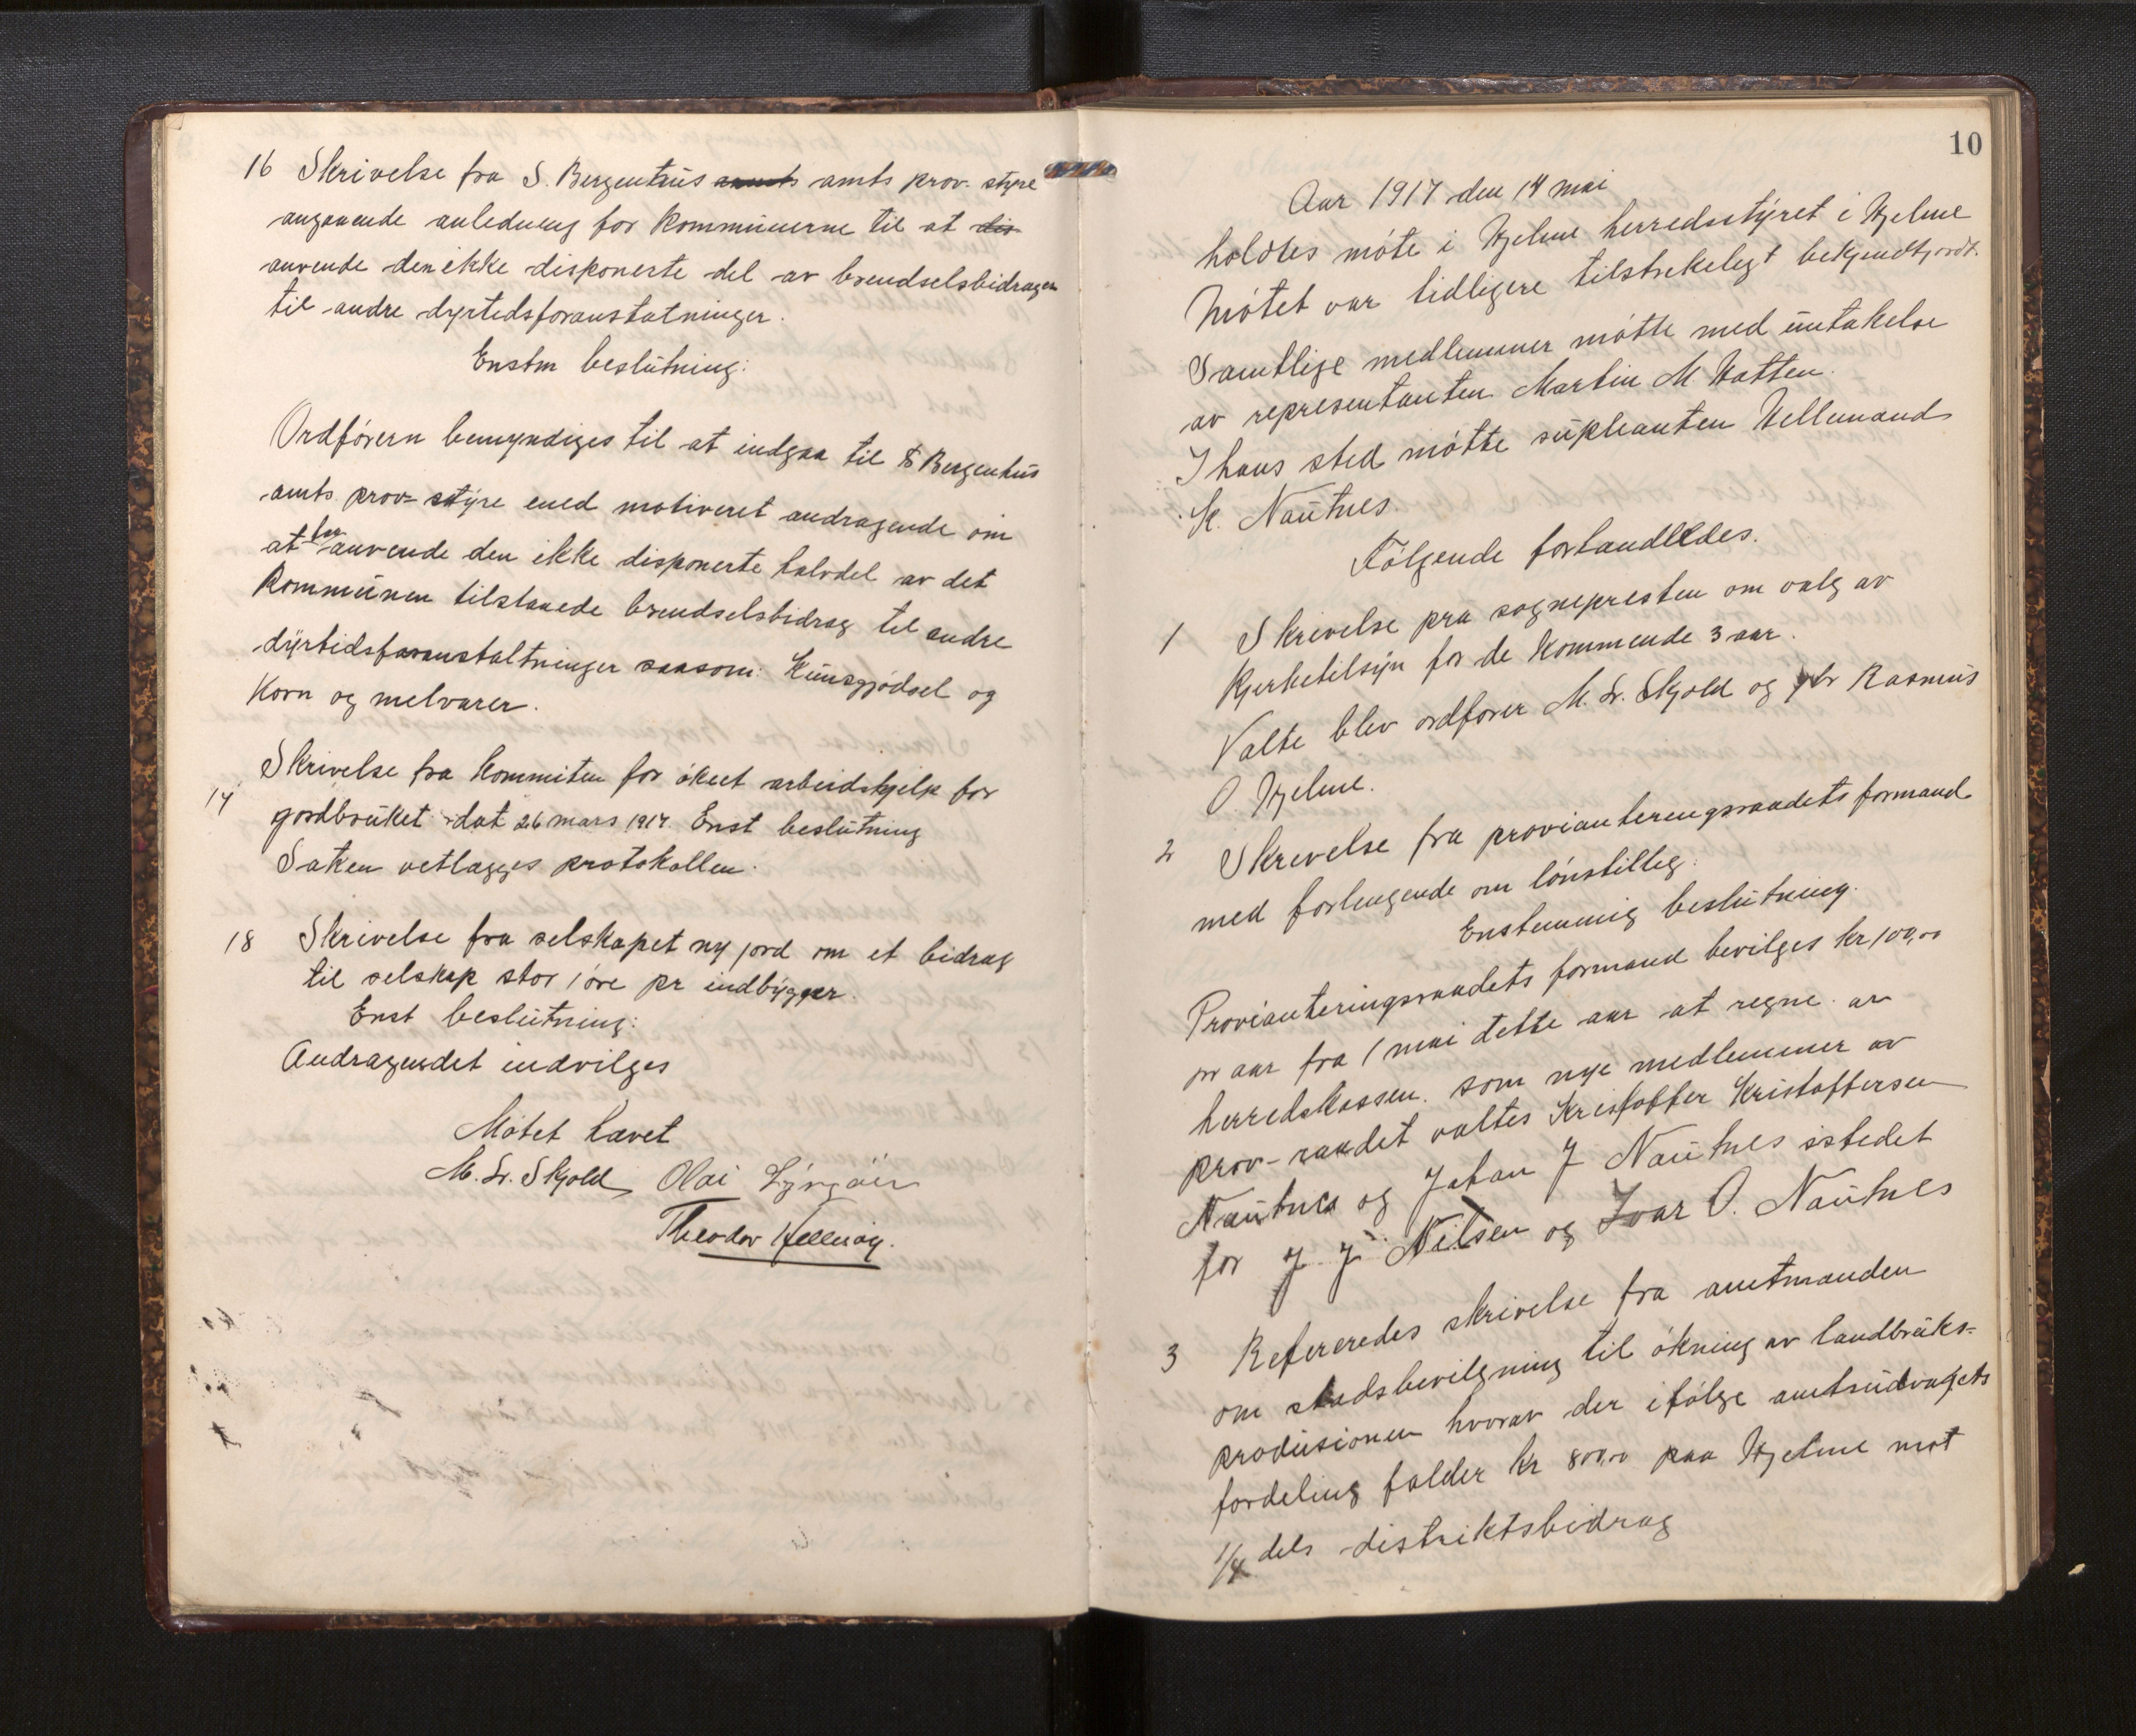 16 Skrivelse fra S. Bergenhus amts amts prov. styre
angaaende anledning for kommunerne til at dis
anvende den ikke disponerte del av brendselsbidragen
til andre dyrtidsforanstaltninger.
Enstm beslutning:
Ordførern bemyndiges til at indgaa til S Bergenhus
amts. prov- styre med motiveret andragende om
at faa anvende den ikke disponerte halvdel av det
Kommunen tilstaaede brendselsbidrag til andre
dyrtidsforanstaltninger saasom: Kunsgjødsel og
Korn og melvarer.
17 Skrivelse fra kommiten for øket arbeidshjelp for
jordbruket dat 26 mars 1917. Enst beslutning
Saken vetlagges protokollen.
18 Skrivelse fra selskapet ny jord om et bidrag
til selskap stor 1 øre pr indbygger.
Enst beslutning:
Andragendet indvilges
Møtet hævet
M. Sr. Skjold Olai
Theodor
10
Aar 1917 den 14 mai
holdtes møte i Hjelme herredsstyret i Hjelme
Møtet var tidligere tilstrekelegt bekjendtgjordt.
Samtlige medlemmer møtte med untakelse
av representanten Martin M. Hatten.
I hans sted møtte supleanten Hellemand
K. Nautnes
Følgende forhandledes.
1 Skrivelse fra sognepresten om valg av
Kjerketilsyn for de kommende 3 aar.
Valte blev ordfører M. Sr. Skjold og Rasmus
O. Hjelme.
2 Skrivelse fra provianteringsraadets formand
med forlengende om lønstilleg.
Enstemmig beslutning.
Provianteringsraadets formand bevilges kr 100,00
pr aar fra 1 mai dette aar at regne. av
herredskassen. som nye medlemmer av
prov- raadet valtes Kristoffer Kristoffersen
Nautnes og Johan J Nautnes istedet
for J J Nilsen og Ivar O. Nautnes
3 Refereredes skrivelse fra amtmanden
om stadsbevilgning til økning av landbruks-
produsionen hvorav der ifølge amtsudvalgets
fordeling falder kr 800,00 paa Hjelme mot
1/4 dels distriktsbidrag